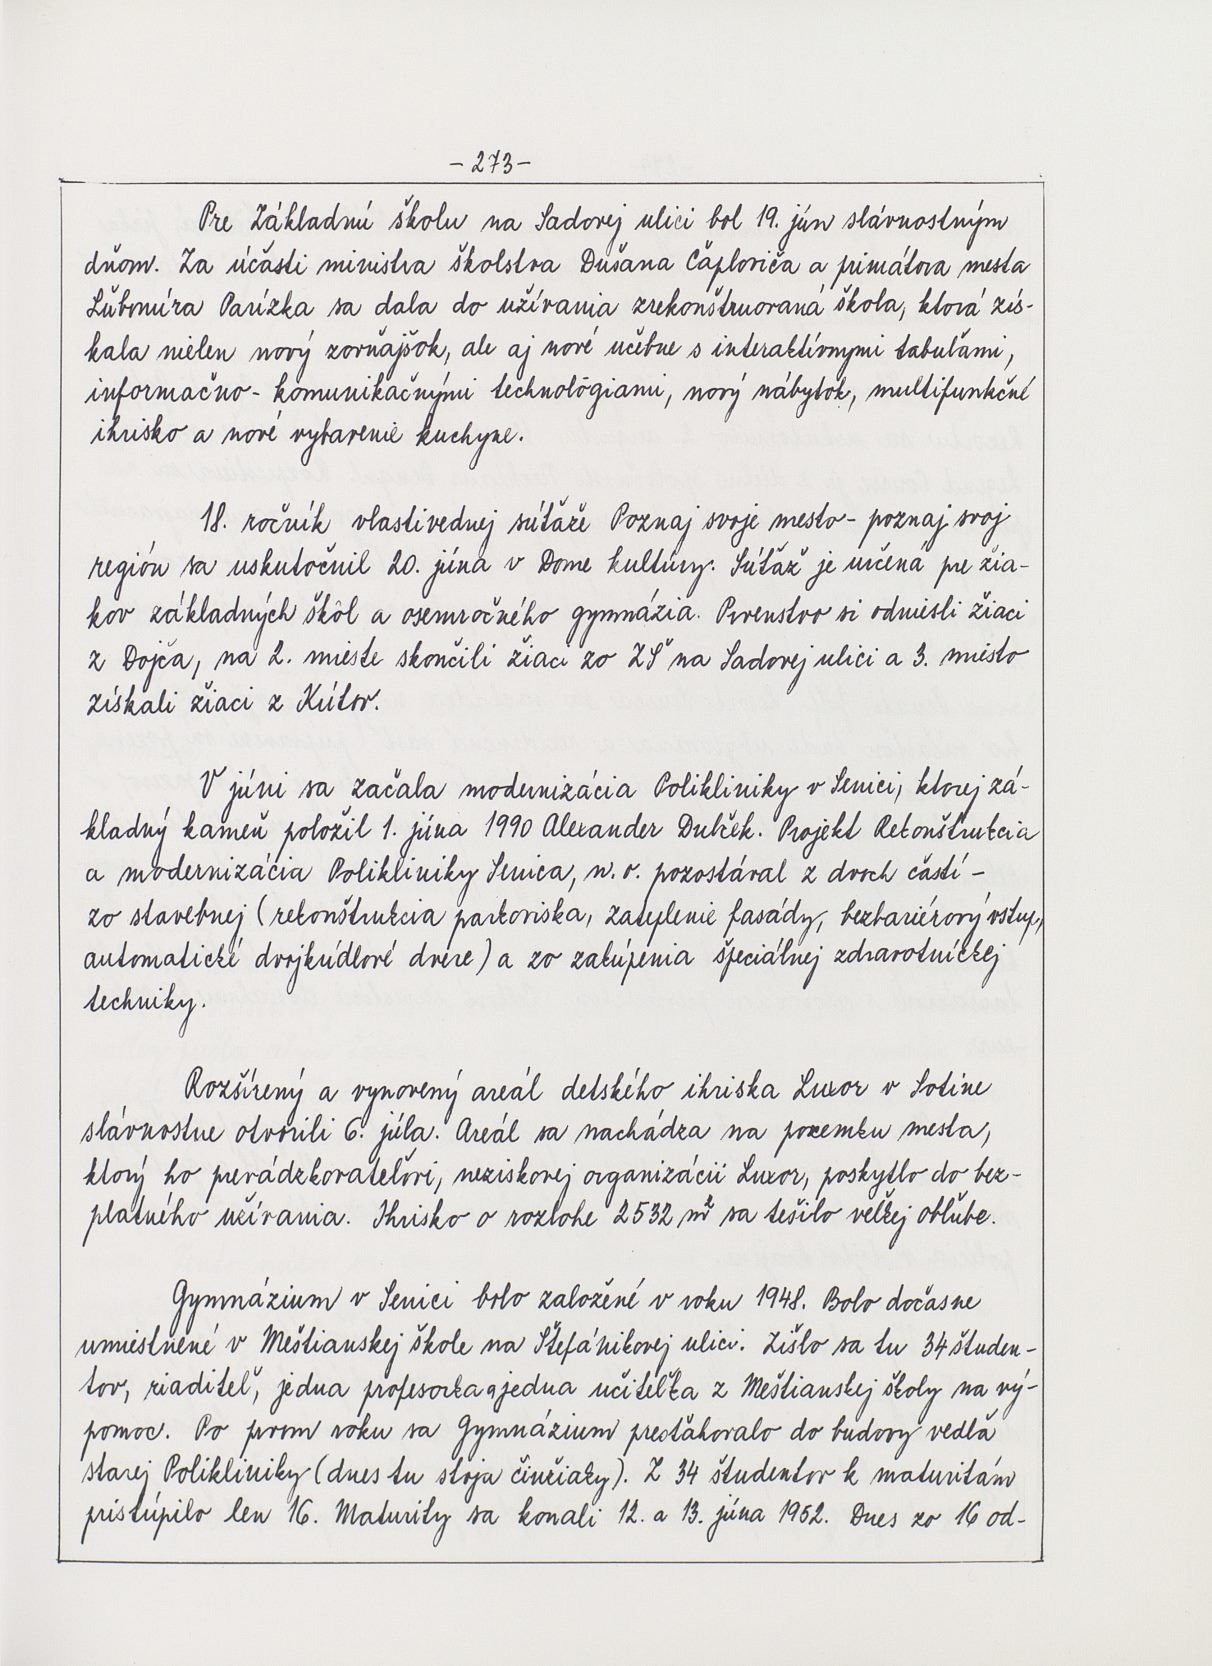 - 273 -
Pre Základnú školu na Sadovej ulici bol 19. jún slávnostným
dňom. Za účasti ministra školstva Dušana Čaploviča a primátora mesta
Ľubomíra Parízka sa dala do užívania zrekonštruovaná škola, ktorá zís-
kala nielen nový zovňajšok, ale aj nové učebne s interaktívnymi tabuľami,
informačno-komunikačnými technológiami, nový nábytok, multifunkčné
ihrisko a nové vybavenie kuchyne.
18. ročník vlastivednej súťaže Poznaj svoje mesto - poznaj svoj
región sa uskutočnil 20. júna v Dome kultúry. Súťaž je určená pre žia-
kov základných škôl a osemročného gymnázia. Prvenstvo si odniesli žiaci
z Dojča, na 2. mieste skončili žiaci zo ZŠ na Sadovej ulici a 3. miesto
získali žiaci z Kútov.
V júni sa začala modernizácia Polikliniky v Senici, ktorej zá-
kladný kameň položil 1. júna 1990 Alexander Dubček. Projekt Rekonštrukcia
a modernizácia Polikliniky Senica, n. o. pozostával z dvoch častí -
zo stavebnej (rekonštrukcia parkoviska, zateplenie fasády, bezbariérový vstup,
automatické dvojkrídlové dvere) a zo zakúpenia špeciálnej zdravotníckej
techniky.
Rozšírený a vynovený areál detského ihriska Luxor v Sotine
slávnostne otvorili 6. júla. Areál sa nachádza na pozemku mesta,
ktorý ho prevádzkovateľovi, neziskovej organizácii Luxor, poskytlo do bez-
platného užívania. Ihrisko o rozlohe 2532 m² sa tešilo veľkej obľube.
Gymnázium v Senici bolo založené v roku 1948. Bolo dočasne
umiestnené v Meštianskej škole na Štefánikovej ulici. Zišlo sa tu 34 študen-
tov, riaditeľ, jedna profesorka a jedna učiteľka z Meštianskej školy na vý-
pomoc. Po prvom roku sa Gymnázium presťahovalo do budovy vedľa
starej Polikliniky (dnes tu stoja činžiaky). Z 34 študentov k maturitám
pristúpilo len 16. Maturity sa konali 12. a 13. júna 1952. Dnes zo 16 od-